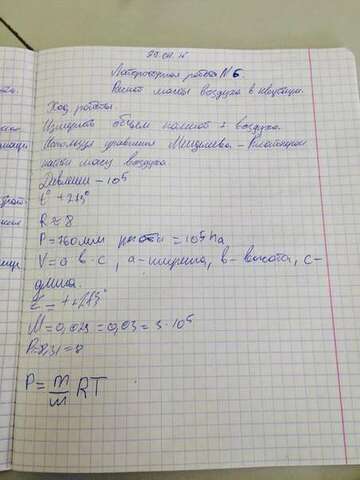 Лабораторная работа №6.
Расчет массы воздуха в квартире.
Ход работы
Измерить объем комнат и воздуха.
Используя уравнения Менделеева-Клапейрона
найти массу воздуха.
Давление - 10⁵
t° +
R ≈ 8
P=760мм = 10⁵ Па
V = а в · с, а-ширина, в-высота, с-
длина.
M = 0,029 = 0,03 = 3 · 10⁵
P=8,31=8
P = m/м RT